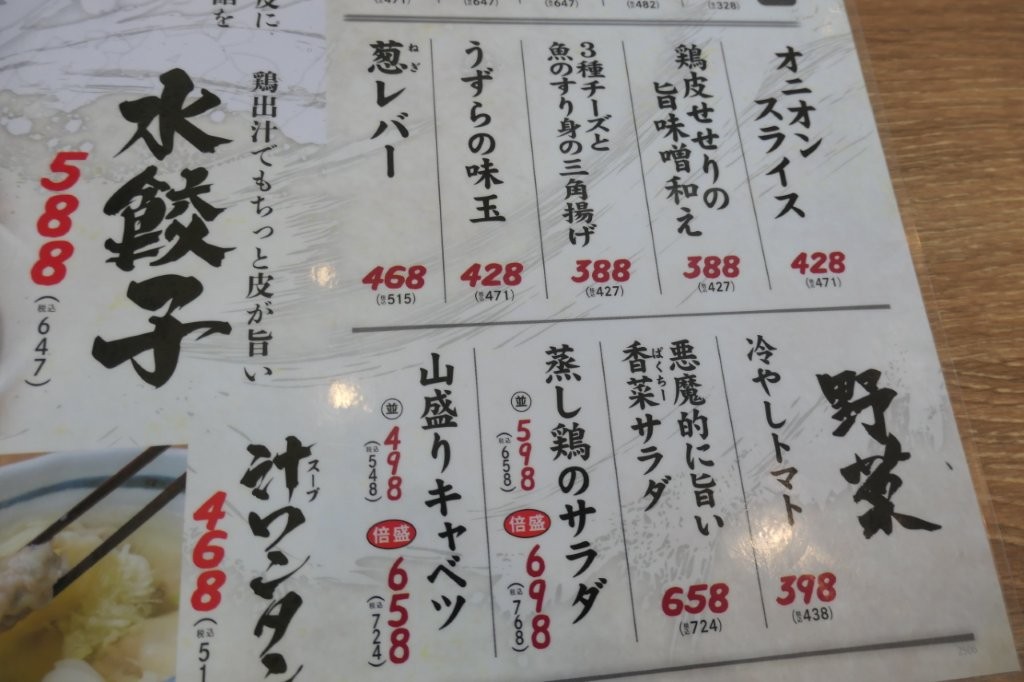 (税471)
(税647)
(税647)
(税482)
(税328)
オニオン
スライス
428
(税471)
鶏皮せせりの
旨味噌和え
388
(税427)
3種チーズと
魚のすり身の三角揚げ
388
(税427)
うずらの味玉
428
(税471)
ねぎ
葱レバー
468
(税515)
野菜
冷やしトマト
398
(税438)
悪魔的に旨い
ぱくちー
香菜サラダ
658
(税724)
蒸し鶏のサラダ
並 598
(税込658)
倍盛 698
(税込768)
山盛りキャベツ
並 498
(税込548)
倍盛 658
(税込724)
皮に
を
鶏出汁でもちっと皮が旨い
水餃子
588
(税込647)
スープ
汁ワンタン
468
(税込51